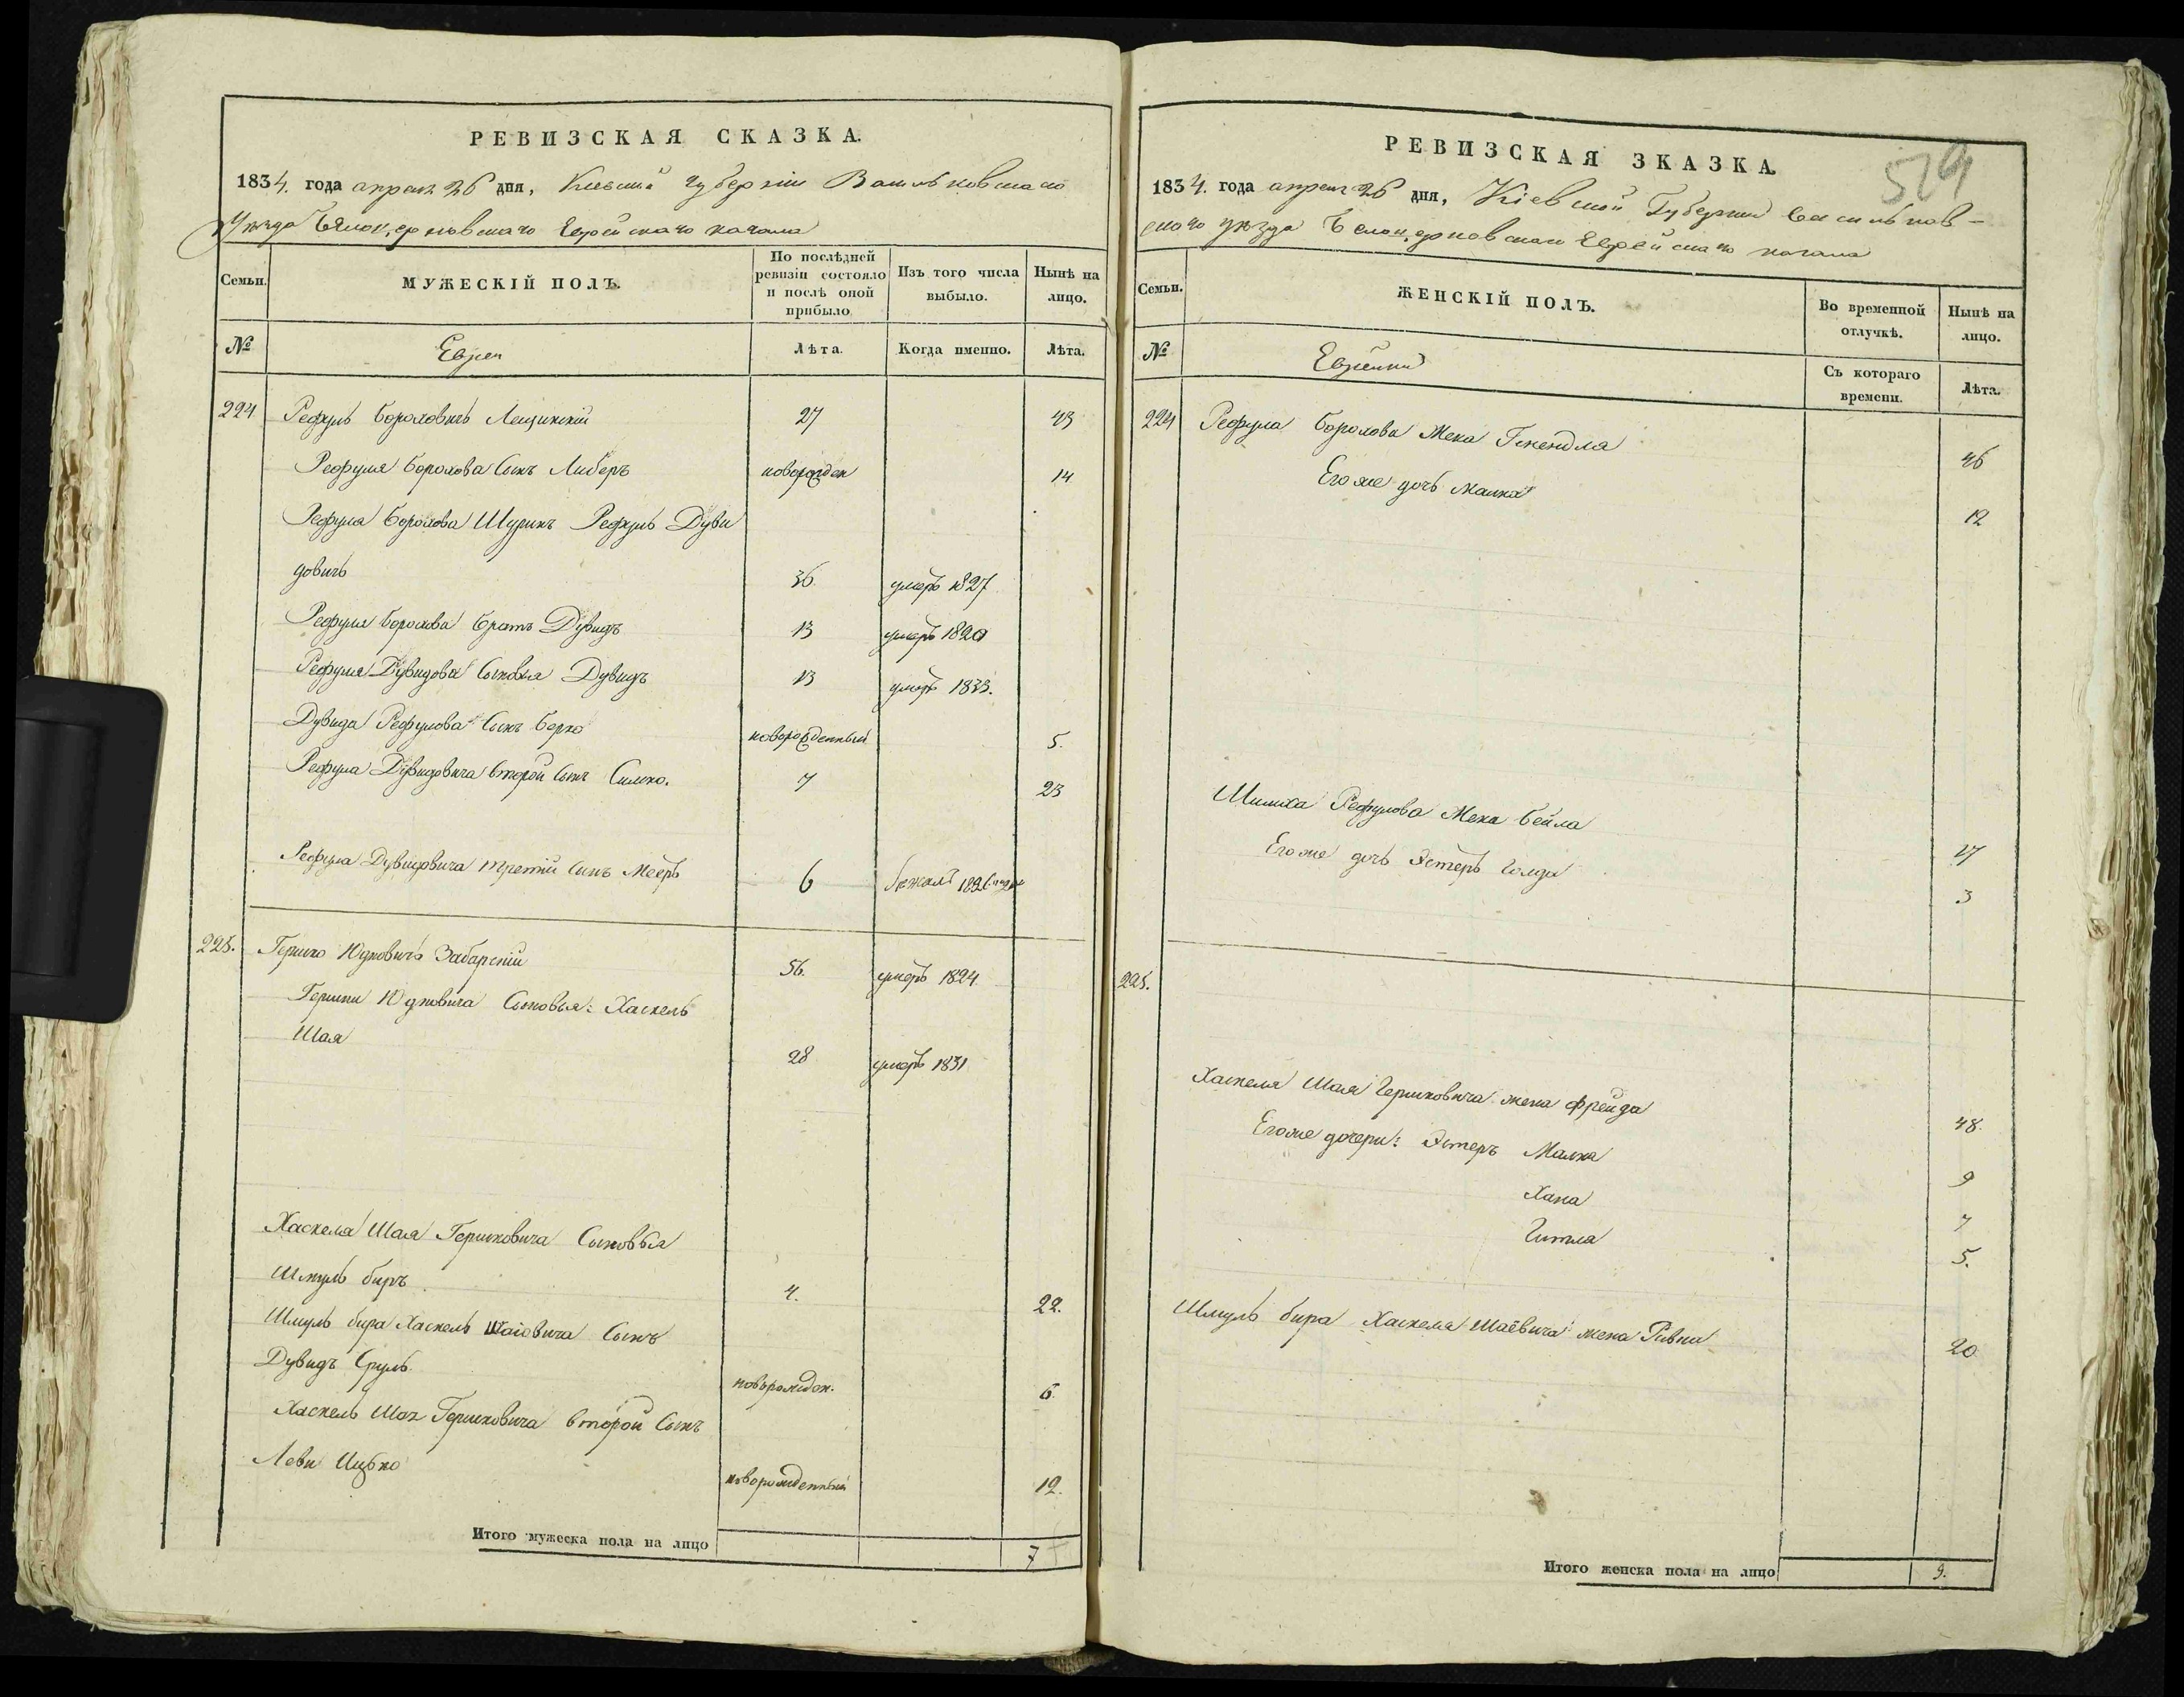 РЕВИЗСКАЯ СКАЗКА.
1834. года апреля 26 дня, Киевской Губернiи Васильковскаго
Уѣзда Бѣлоцерковскаго Еврейскаго кагала
Семьи.
МУЖЕСКІЙ ПОЛЪ.
По послѣдней ревизіи состояло и послѣ оной прибыло
Изъ того числа выбыло.
Нынѣ на лицо.
№
Евреи
Лѣта.
Когда именно.
Лѣта.
224 Рефулъ Бороховичъ Лещинскій 27 43
Рефуля Борохова Сынъ Либеръ новорожден 14
Рефуля Борохова Шуринъ Рефулъ Дуви
довичъ 36. умеръ 1827
Рефуля Борохова Братъ Дувидъ 13 умеръ 1820
Рефуля Дувидова Сыновья Дувидъ 13 умеръ 1833.
Дувида Рефулова Сынъ Берко новорожденный 5.
Рефула Дувидовича второй сынъ 7 23
Рефула Дувидовича третій сынъ Мееръ 6 бежалъ 1826
225. Гершко Юдковичъ Збарскій 56. умеръ 1824
Гершки Юдковича Сыновья: Хаскель
Шая 28 умеръ 1831
Хаскеля Шая Гершковича Сыновья
Шмуль биръ 4. 22.
Шмуль бира Хаскель Шаіовича Сынъ
Дувидъ Сруль новорожден. 6.
Хаскель Шая Гершковича второй Сынъ
Леви Ицько новорожденный 12.
Итого мужеска пола на лицо 7
РЕВИЗСКАЯ ЗКАЗКА.
529
1834. года апреля 26 дня, Кіевской Губерніи Васильков-
скаго уѣзда Белоцерковскаго Еврейскаго кагала
Семьи.
ЖЕНСКІЙ ПОЛЪ.
Во временной отлучкѣ.
Нынѣ на лицо.
№
Еврейки
Съ котораго времени.
Лѣта.
224 Рефула Борохова Жена Гнендля 46
Его же дочь Малка 12
Шимха Рефулова Жена Бейла 27
Его же дочь Эстеръ Голда 3
225.
Хаскеля Шая Гершковича жена Фрейда 48.
Его же дочери: Эстеръ Малка 9
Хана 7
Гитля 5.
Шмуль бира Хаскеля Шаёвича жена Ривка 20
Итого женска пола на лицо 9.